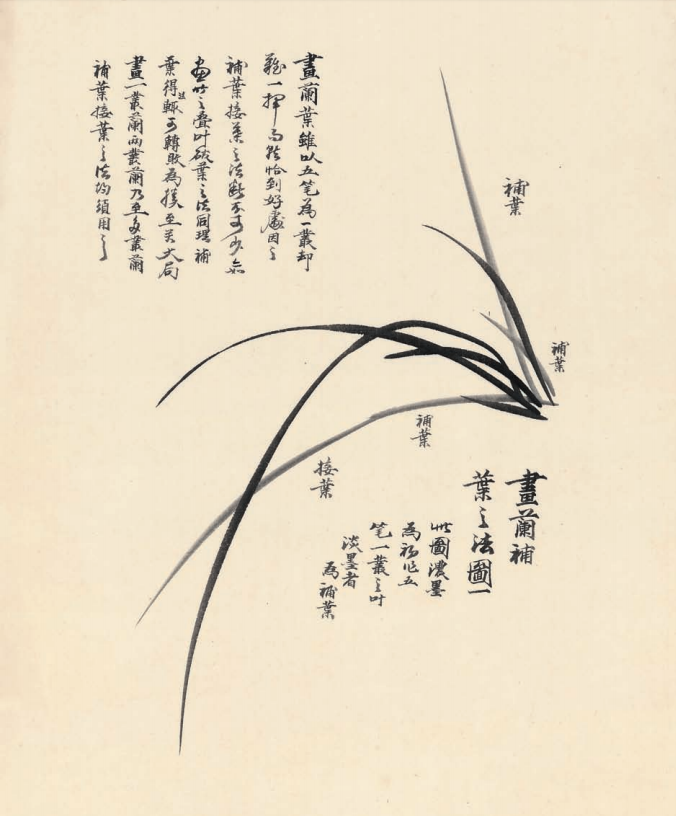 畫蘭葉雖以五笔為一叢却
難一揮而就恰到好處因之
補葉接葉之法斷不可少亦如
畫竹之疊叶破葉之法同理補
葉得趣輒可轉敗為
至关大局
畫一叢蘭兩叢蘭乃至多叢蘭
補葉接葉之法均須用之
補葉
補葉
補葉
接葉
畫蘭補
葉之法圖一
此圖濃墨
為初作五
笔一叢之叶
淡墨者
為補葉